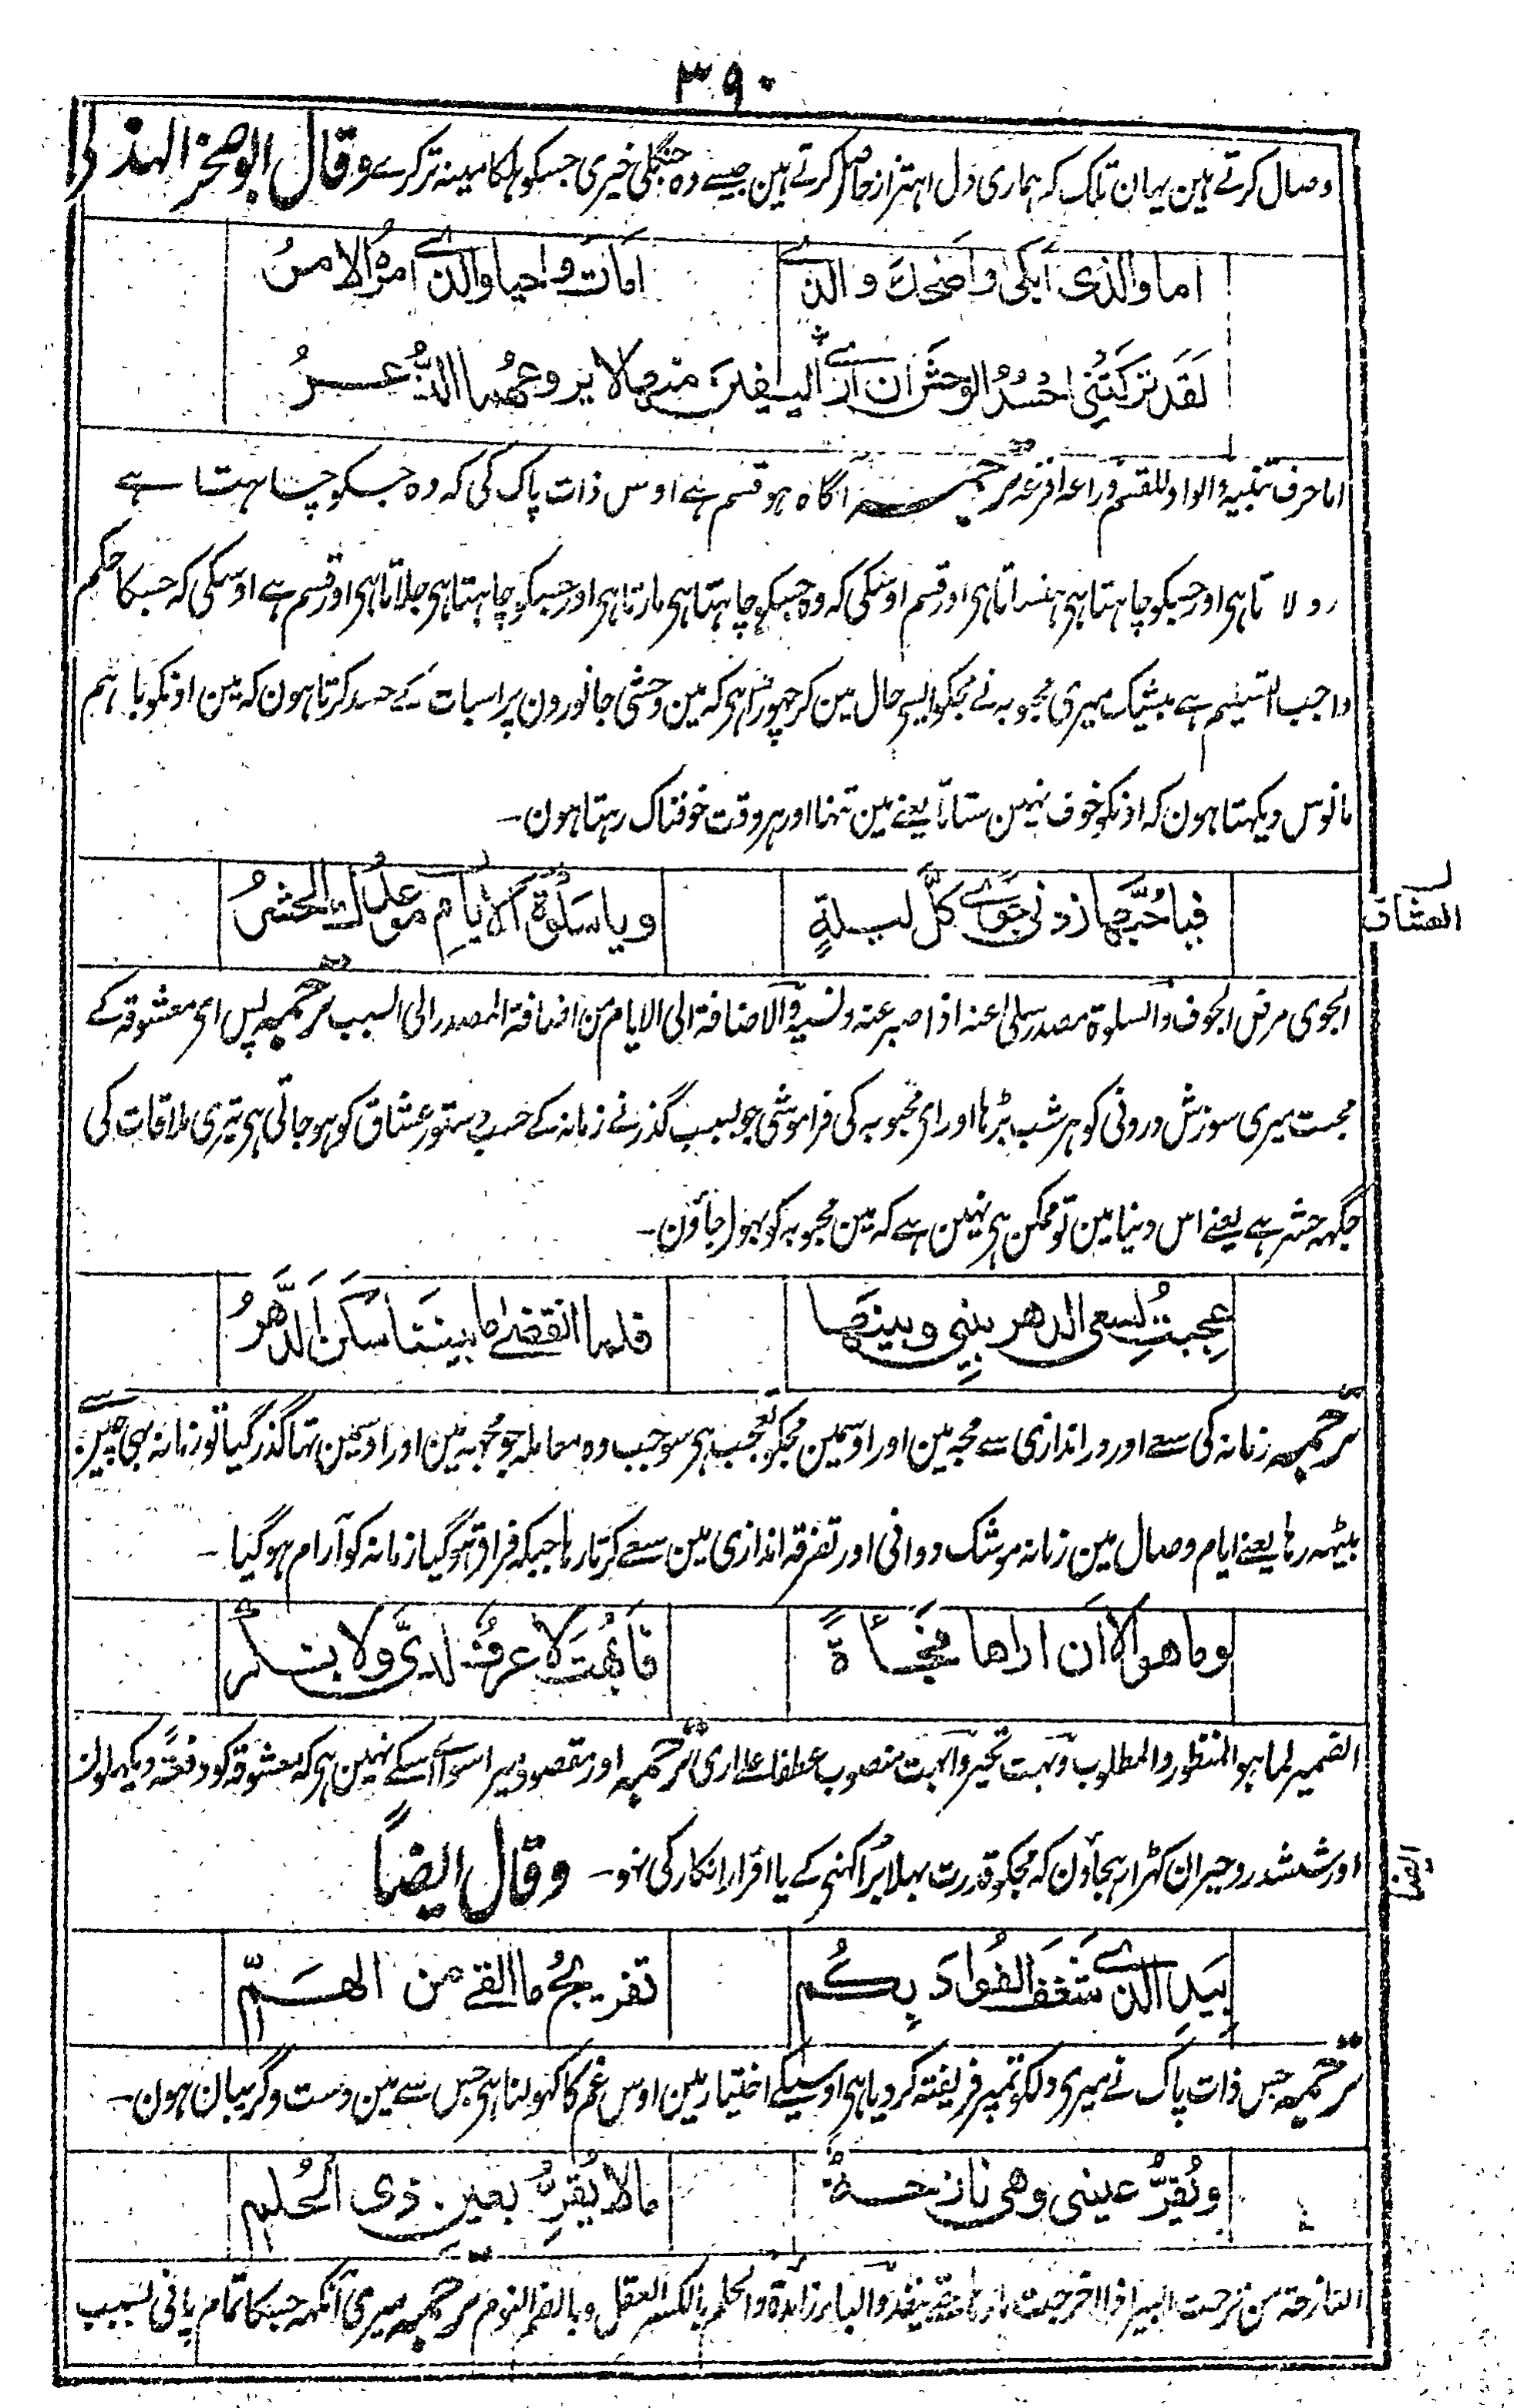 ۳۹۰
وصال کرتے ہین یہان تلک کہ ہماری دل اہتزاز حاصل کرتے ہین جیسے وہ جنگلی خیری جسکو ہلکا مینہ تر کرے وقال ابو صخر الہذلی
اما والذی ابکی واضحک والذی امات واحیا والذی امرہ الامرُ
لَقَد تَرَکَتنِی احسُدُ الوحشَ ان اَرٰی الیفین منہا لا یروعہما الذُّعرُ
اما حرف تنبیہ والواو للقسم وراعہ افزعہ ترجمہ آگاہ ہو قسم ہے اوس ذات پاک کی کہ وہ جسکو چاہتا ہے
رولاتا ہی اور جسکو چاہتا ہی ہنساتا ہی اور قسم اوسکی کہ وہ جسکو چاہتا ہی مارتا ہی اور جسکو چاہتا ہی جلاتا ہی اور قسم ہے اوسکی کہ جسکا حکم
واجب التسلیم ہے بیشک میری محبوبہ نے مجکو ایسی حال مین کر چھوڑا ہی کہ مین وحشی جانورون پر اسبات کے حسد کرتا ہون کہ مین اونکو باہم
مانوس دیکھتا ہون کہ اونکو خوف نہین ستاتا یعنے مین تنہا اور ہر وقت خوفناک رہتا ہون۔
فیا حُبَّہا زدنی جَوًی کلَّ لیلةٍ ویا سَلوَةَ الایامِ موعدُک الحشرُ
العشاق
الجوی مرض الجوف والسلوة مصدر سلی عنہ اذا صبر عنہ ونسیہ والاضافة الی الایام من اضافة المصدر الی السبب ترجمہ پس ای معشوقہ کے
محبت میری سوزش درونی کو ہر شب بڑہا اور ای محبوبہ کی فراموشی جو بسبب گذرنے زمانہ کے حسب دستور عشاق کو ہو جاتی ہی تیری ملاقات کی
جگہہ حشر ہے یعنے اس دنیا مین تو ممکن ہی نہین ہے کہ مین محبوبہ کو بھول جاؤن۔
عجِبتُ لسعی الدهر بینی وبینها فلما انقضٰی ما بیننا سکن الدَّهرُ
ترجمہ زمانہ کی سعے اور دراندازی سے مجہ مین اور اوسمین مجکو تعجب ہی سو جب وہ معاملہ جو مجہ مین اور اوسمین تہا گذر گیا تو زمانہ بھی چین سے
بیٹھہ رہا یعنے ایام وصال مین زمانہ موشک دوانی اور تفرقہ اندازی مین سعے کرتا رہا جبکہ فراق ہوگیا زمانہ کو آرام ہوگیا۔
وما هو الا ان اراها فجاءةً فابهتَ لا عرفٌ لدیَّ ولا نکر
الضمیر لما ہو المنظور والمطلوب وبہت تحیر وابہت منصوب عطفا علی اری ترجمہ اور مقصود میرا سواے اسکے نہین ہی کہ معشوقہ کو دفعةً دیکھہ لون
اور ششدر و حیران کھڑا رہجاؤن کہ مجکو قدرت بھلا برا کہنی کے یا اقرار انکار کی نہو۔ وقال ایضاً
ایضا
بِیَدِ الذی شَغَفَ الفُؤادَ بِکُم تفریجُ ما القٰی من الهَمِّ
ترجمہ جس ذات پاک نے میری دلکو تمپر فریفتہ کردیا ہی اوسیکے اختیار مین اوس غم کا کھولنا ہی جس سے مین دست و گریبان ہون۔
ویُقِرُّ عینی وهی نازحةٌ ما لا یُقِرُّ بعین ذی الحُلمِ
النازحة من نزحت البیر اذا اخرجت ماءہا حتی ینفد والباء زائدة والحلم بالکسر العقل وبالضم النوم ترجمہ میری آنکھہ جسکا تمام پانی بسبب